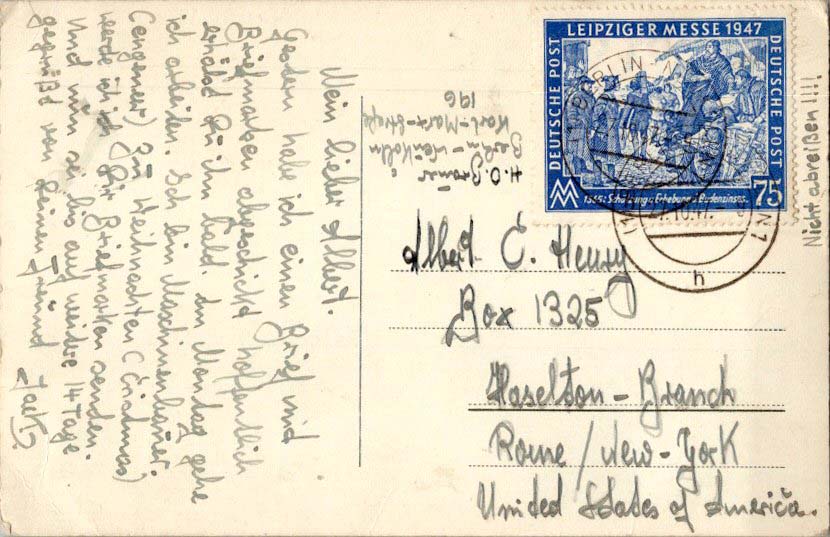 Mein lieber Albert.
Gestern habe ich einen Brief mit
Briefmarken abgeschickt hoffentlich
erhälst Du ihn bald. Am Montag gehe
ich arbeiten. Ich bin Maschinenbauer.
Zu Weihnachten (Cristmas)
werde ich Dir Briefmarken senden.
Und nun sei bis auf weitere 14 Tage
gegrüßt von Deinem Freund
H.O. Bromer
Berlin-Neukölln
Karl-Marx-Straße
196
LEIPZIGER MESSE 1947
DEUTSCHE POST
DEUTSCHE POST
MM
75
BERLIN
h
Nicht abreißen!!!!
Albert E. Henry
Box 1325
Haselton-Branch
Rome/New-York
United States of America.